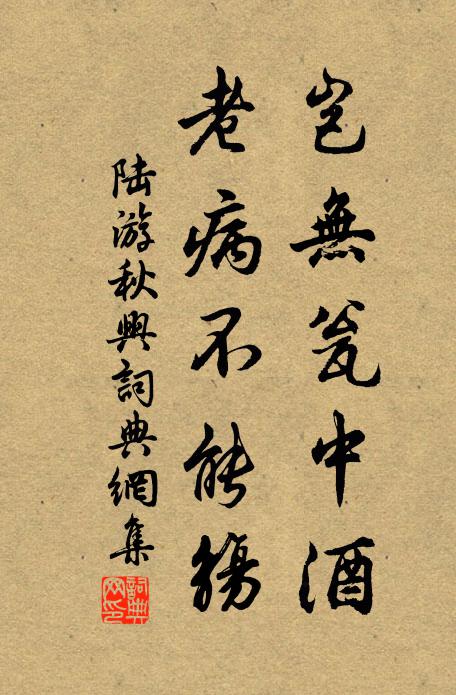 豈無瓮中酒
老病不能觴
陆游秋興詞典網集
詞典网印